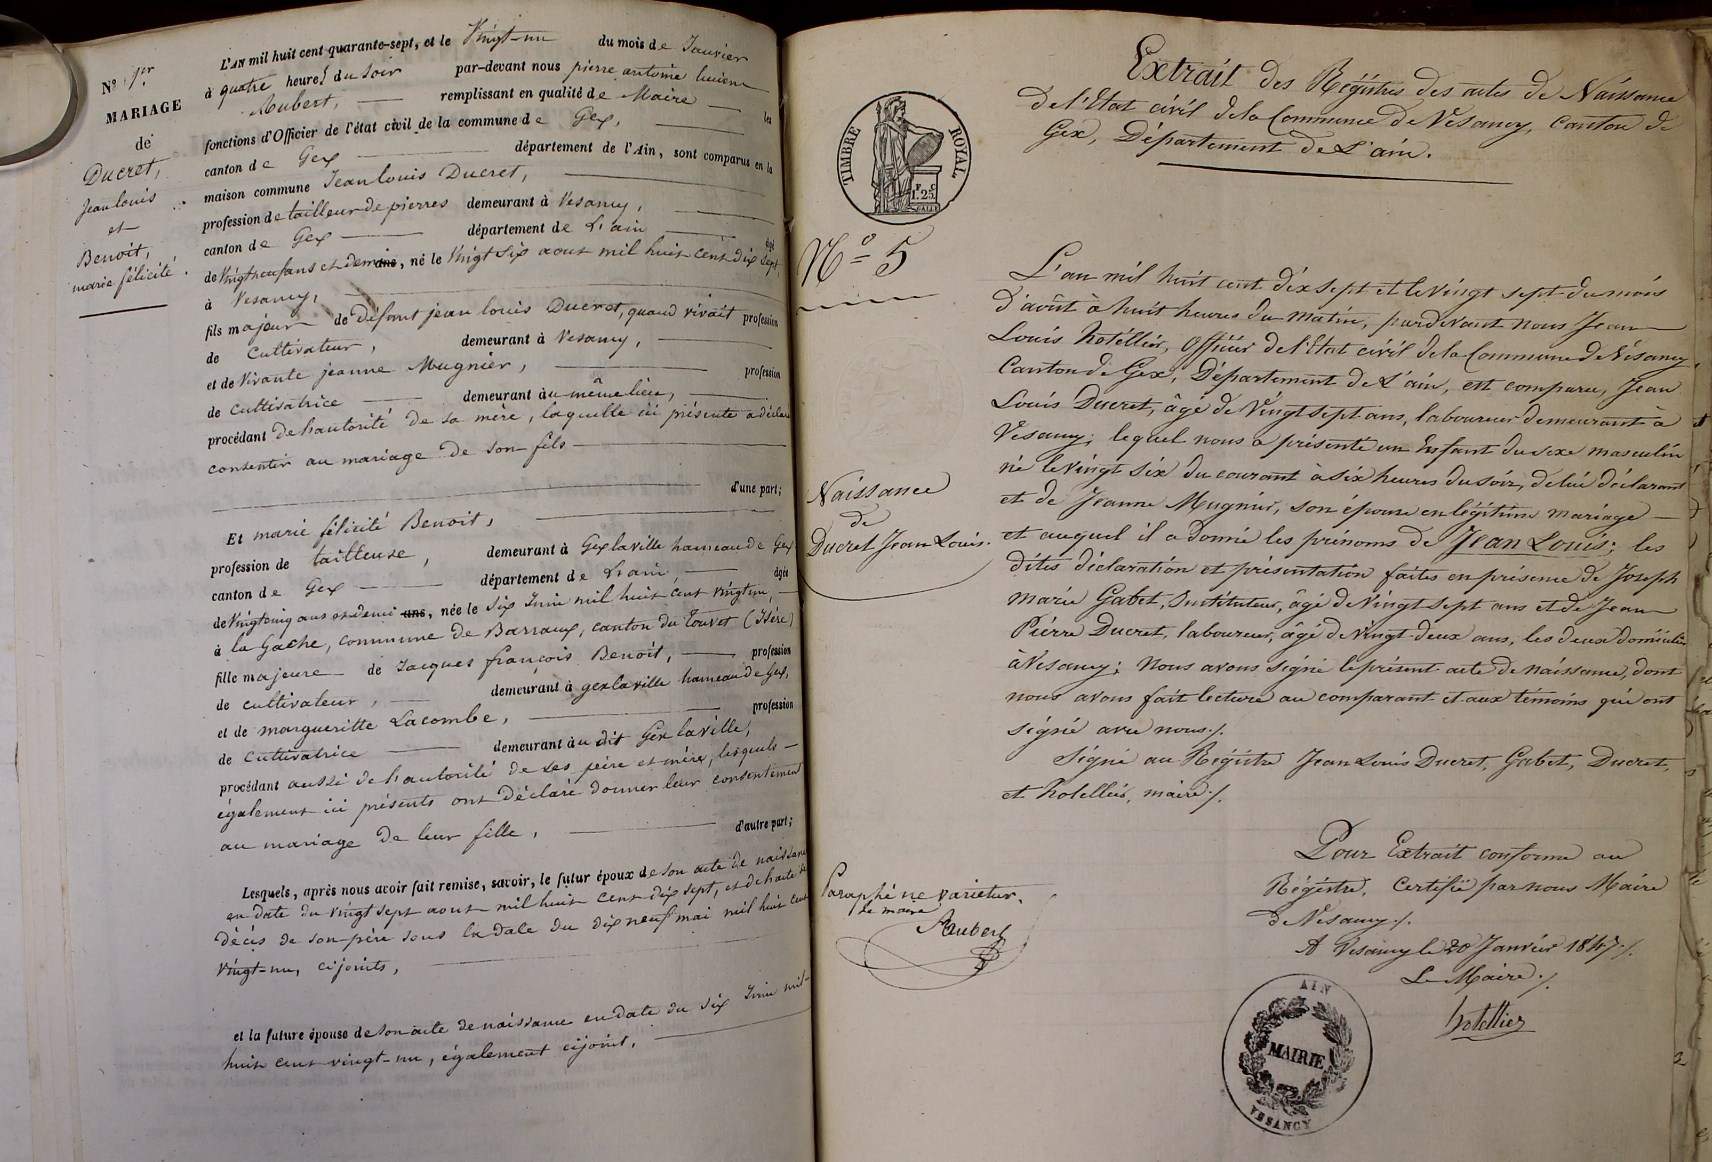 N.º 1.er
MARIAGE
de
Ducret,
Jean louis
et
Benoit,
marie félicité.
L'AN mil huit cent quarante-sept, et le Vingt-un du mois de Janvier
à quatre heures du soir par-devant nous pierre antoine lucien
Aubert, remplissant en qualité de Maire les
fonctions d'Officier de l'état civil de la commune de Gex,
canton de Gex département de l'Ain, sont comparus en la
maison commune Jean louis Ducret,
profession de tailleur de pierres demeurant à Vesancy,
canton de Gex département de L'ain âgé
de Vingt neuf ans et demi ans, né le Vingt six aout mil huit cent dix sept,
à Vesancy,
fils majeur de défunt jean louis Ducret, quand vivait profession
de Cultivateur, demeurant à Vesancy,
et de Vivante jeanne Mugnier, profession
de cultivatrice demeurant au même lieu,
procédant de l'autorité de sa mère, laquelle ici présente a déclaré
consentir au mariage de son fils
d'une part;
Et marie félicité Benoit,
profession de tailleuse, demeurant à Gex la ville hameau de Gex
canton de Gex département de L'ain, âgée
de Vingt cinq ans et demi ans, née le six Juin mil huit cent vingt un,
à la Gache, commune de Barraux, canton du Touvet (Isère)
fille majeure de Jacques françois Benoit, profession
de cultivateur, demeurant à gex la ville hameau de Gex,
et de margueritte Lacombe, profession
de cultivatrice demeurant au dit Gex la ville,
procédant aussi de l'autorité de ses père et mère, lesquels
également ici présents ont déclaré donner leur consentement
au mariage de leur fille, d'autre part;
Lesquels, après nous avoir fait remise, savoir, le futur époux de son acte de naissance
en date du vingt sept aout mil huit cent dix sept, et de l'acte de
décès de son père sous la date du dix neuf mai mil huit cent
vingt-un, cijoints,
et la future épouse de son acte de naissance en date du six Juin mil
huit cent vingt-un, également cijoint.
Extrait des Régistres des actes de Naissance
de l'Etat civil de la Commune de Vesancy, Canton de
Gex, Département de L'ain.
TIMBRE ROYAL
F. C
1. 25
N.º 5
Naissance
de
Ducret Jean Louis.
L'an mil huit cent dix sept et le vingt sept du mois
d'août à huit heures du matin, pardevant nous Jean
Louis hotellier, Officier de l'Etat civil de la Commune de Vesancy,
Canton de Gex, Département de L'ain, est comparu, Jean
Louis Ducret, âgé de Vingt sept ans, laboureur demeurant à
Vesancy; lequel nous a présenté un Enfant du sexe masculin
né le vingt six du courant à six heures du soir, de lui déclarant
et de Jeanne Mugnier, son épouse en légitime mariage
et auquel il a donné les prénoms de Jean Louis; les
dites déclaration et présentation faites en présence de Joseph
Marie Gabet, Instituteur, âgé de Vingt sept ans et de Jean
Pierre Ducret, laboureur, âgé de Vingt-deux ans, les deux domiciliés
à Vesancy; Nous avons signé le présent acte de naissance, dont
nous avons fait lecture au comparant et aux témoins qui ont
signé avec nous./.
Signé au Régistre Jean Louis Ducret, Gabet, Ducret,
et hotellier, maire./.
Pour Extrait conforme au
Régistre, Certifié par nous Maire
de Vesancy./.
A Vesancy le 20 Janvier 1847./.
Le Maire./.
hotellier
Paraphé ne varietur.
le maire
Aubert
AIN
MAIRIE
VESANCY
2